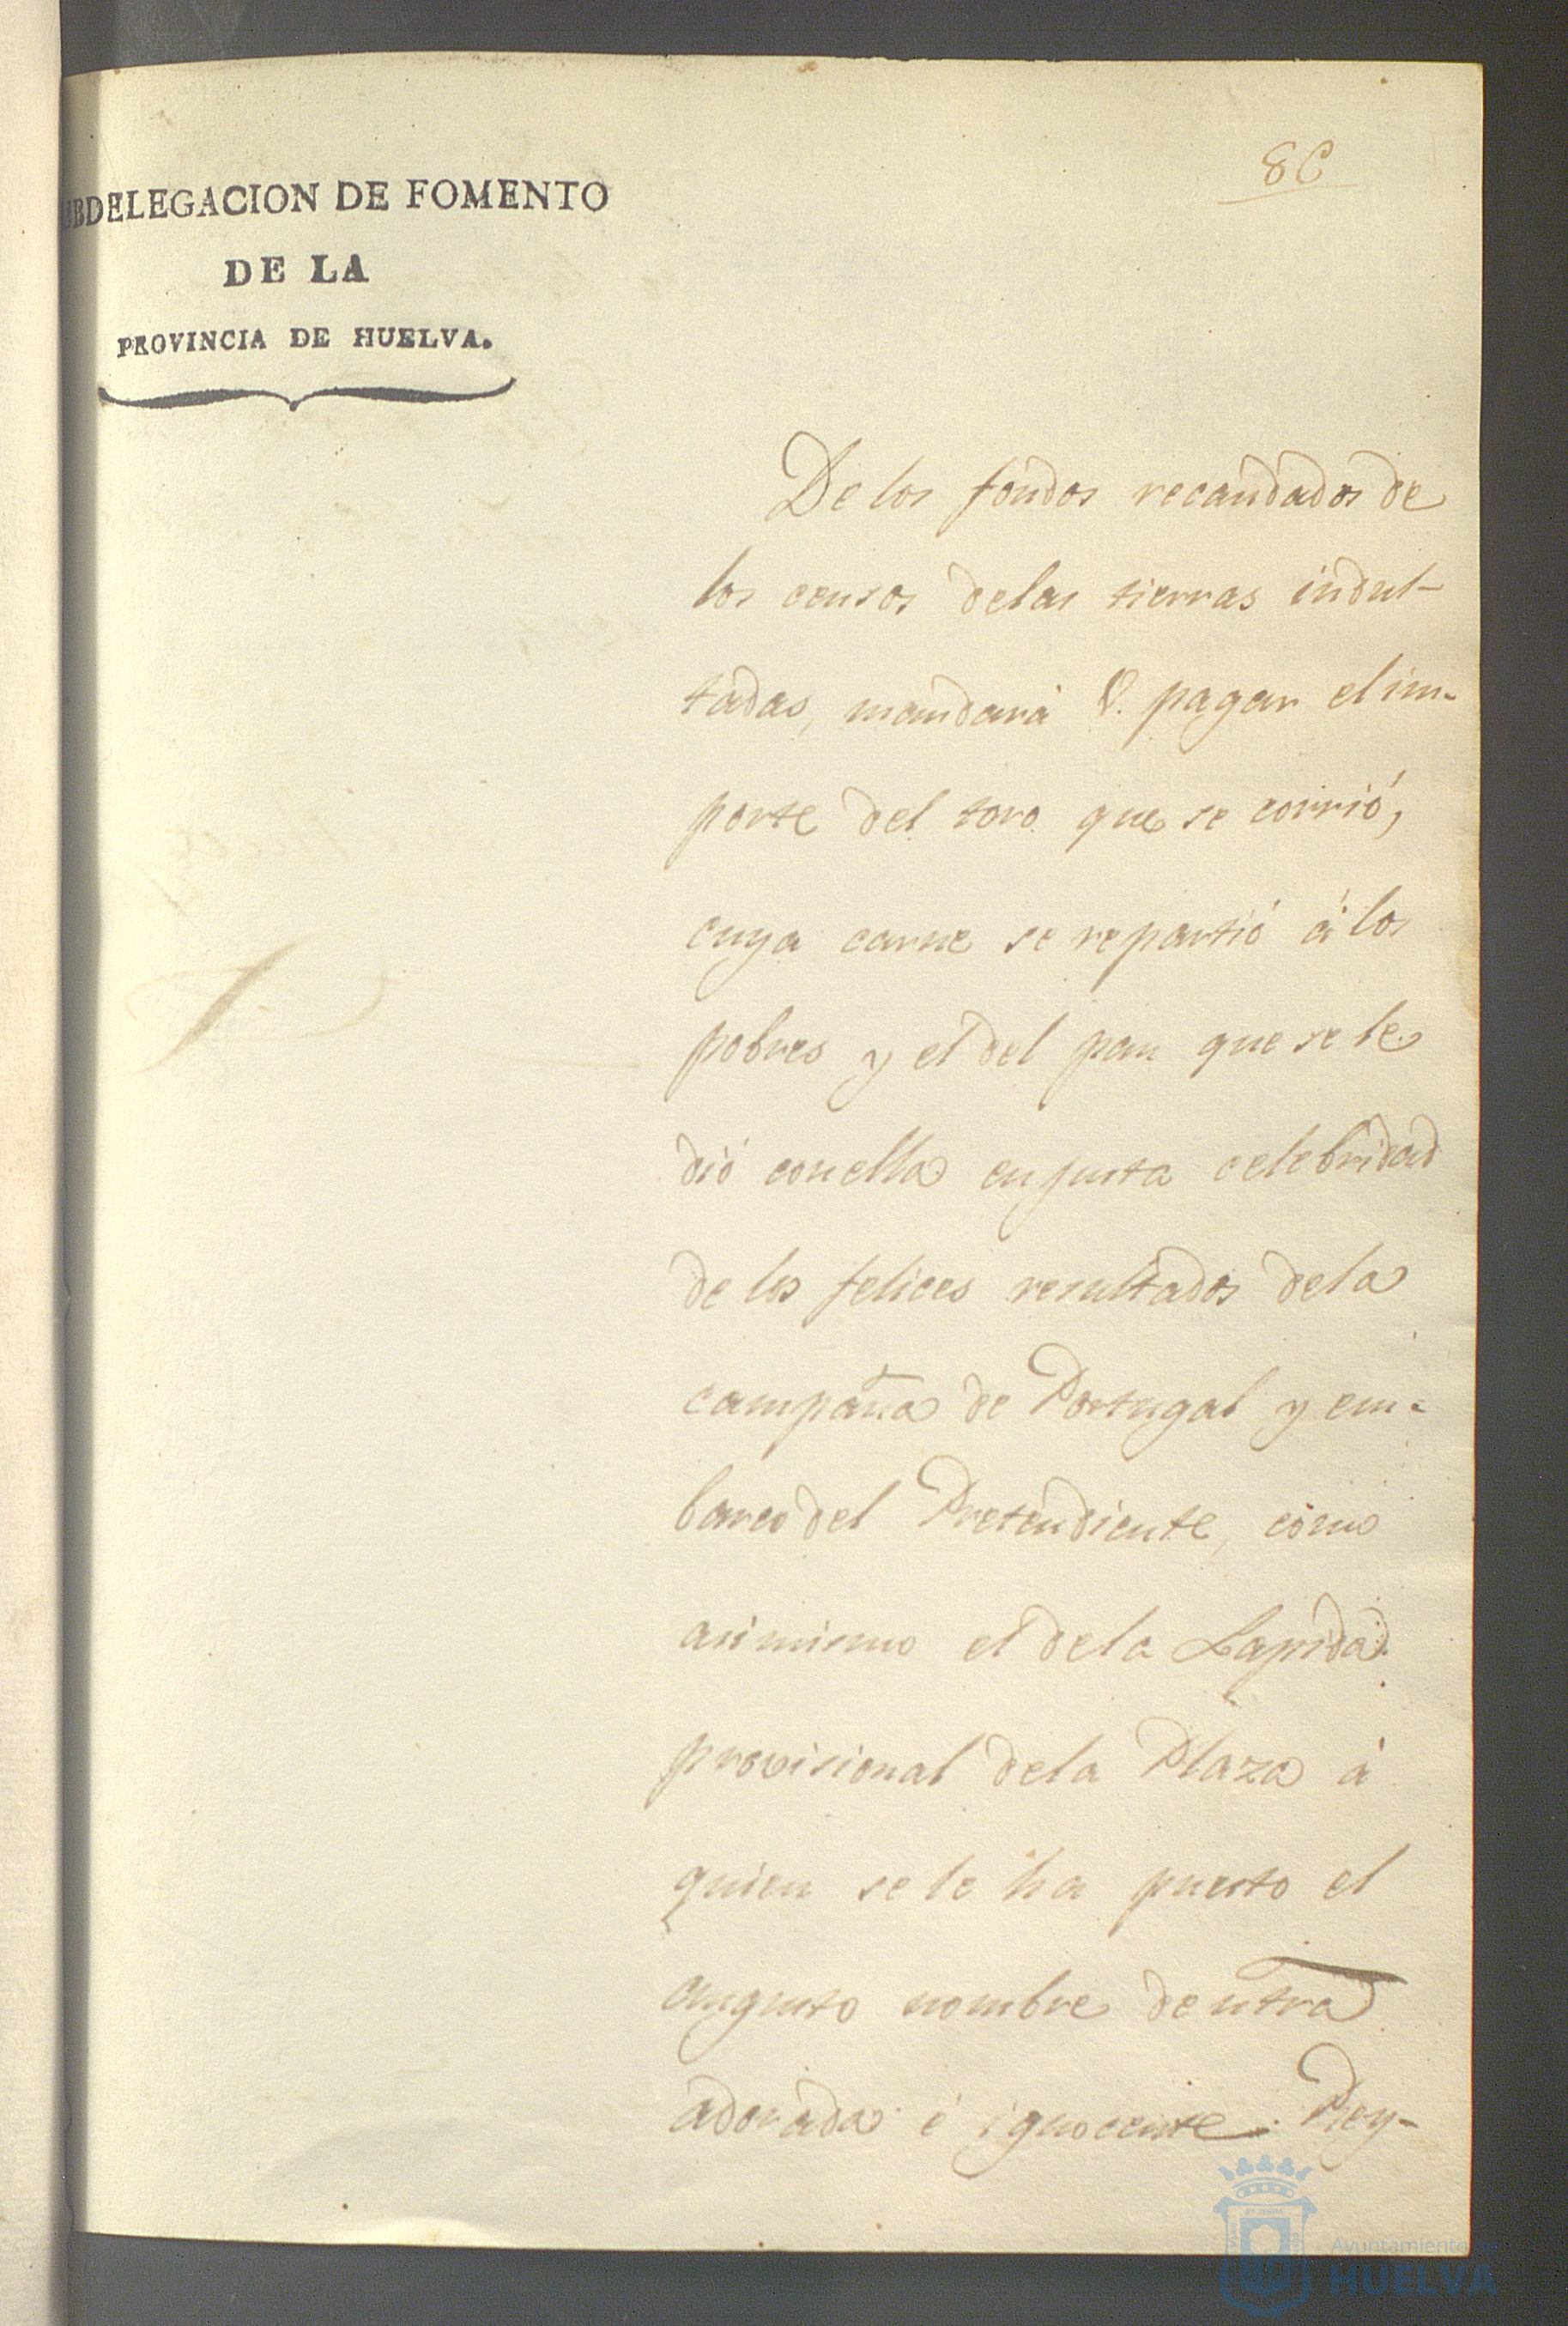 80
UBDELEGACION DE FOMENTO
DE LA
PROVINCIA DE HUELVA.
De los fondos recaudados de
los censos delas tierras indul-
tadas, mandará V. pagar el im-
porte del toro que se corrió,
cuya carne se repartió á los
pobres y el del pan que se le
dió con ella en justa celebridad
de los felices resultados dela
campaña de Portugal y em-
barco del Pretendiente, como
asi mismo el dela Lapida
provisional dela Plaza á
quien se le ha puesto el
augusto nombre de ntra
adorada é ignocente Rey-
Ayuntamiento de
HUELVA